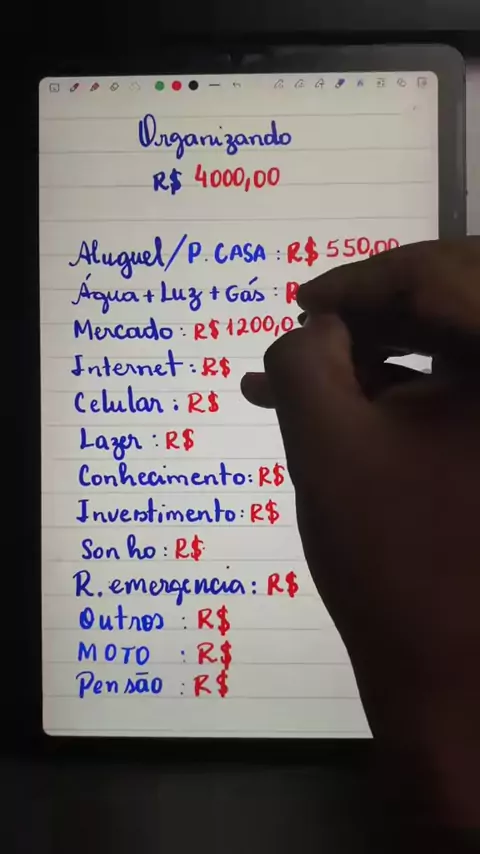 Organizando
R$ 4000,00
Aluguel/P. CASA : R$ 550,00
Água + Luz + Gás : R
Mercado : R$ 1200,0
Internet : R$
Celular : R$
Lazer : R$
Conhecimento: R$
Investimento: R$
Sonho : R$
R. emergencia : R$
Outros : R$
MOTO : R$
Pensão : R$